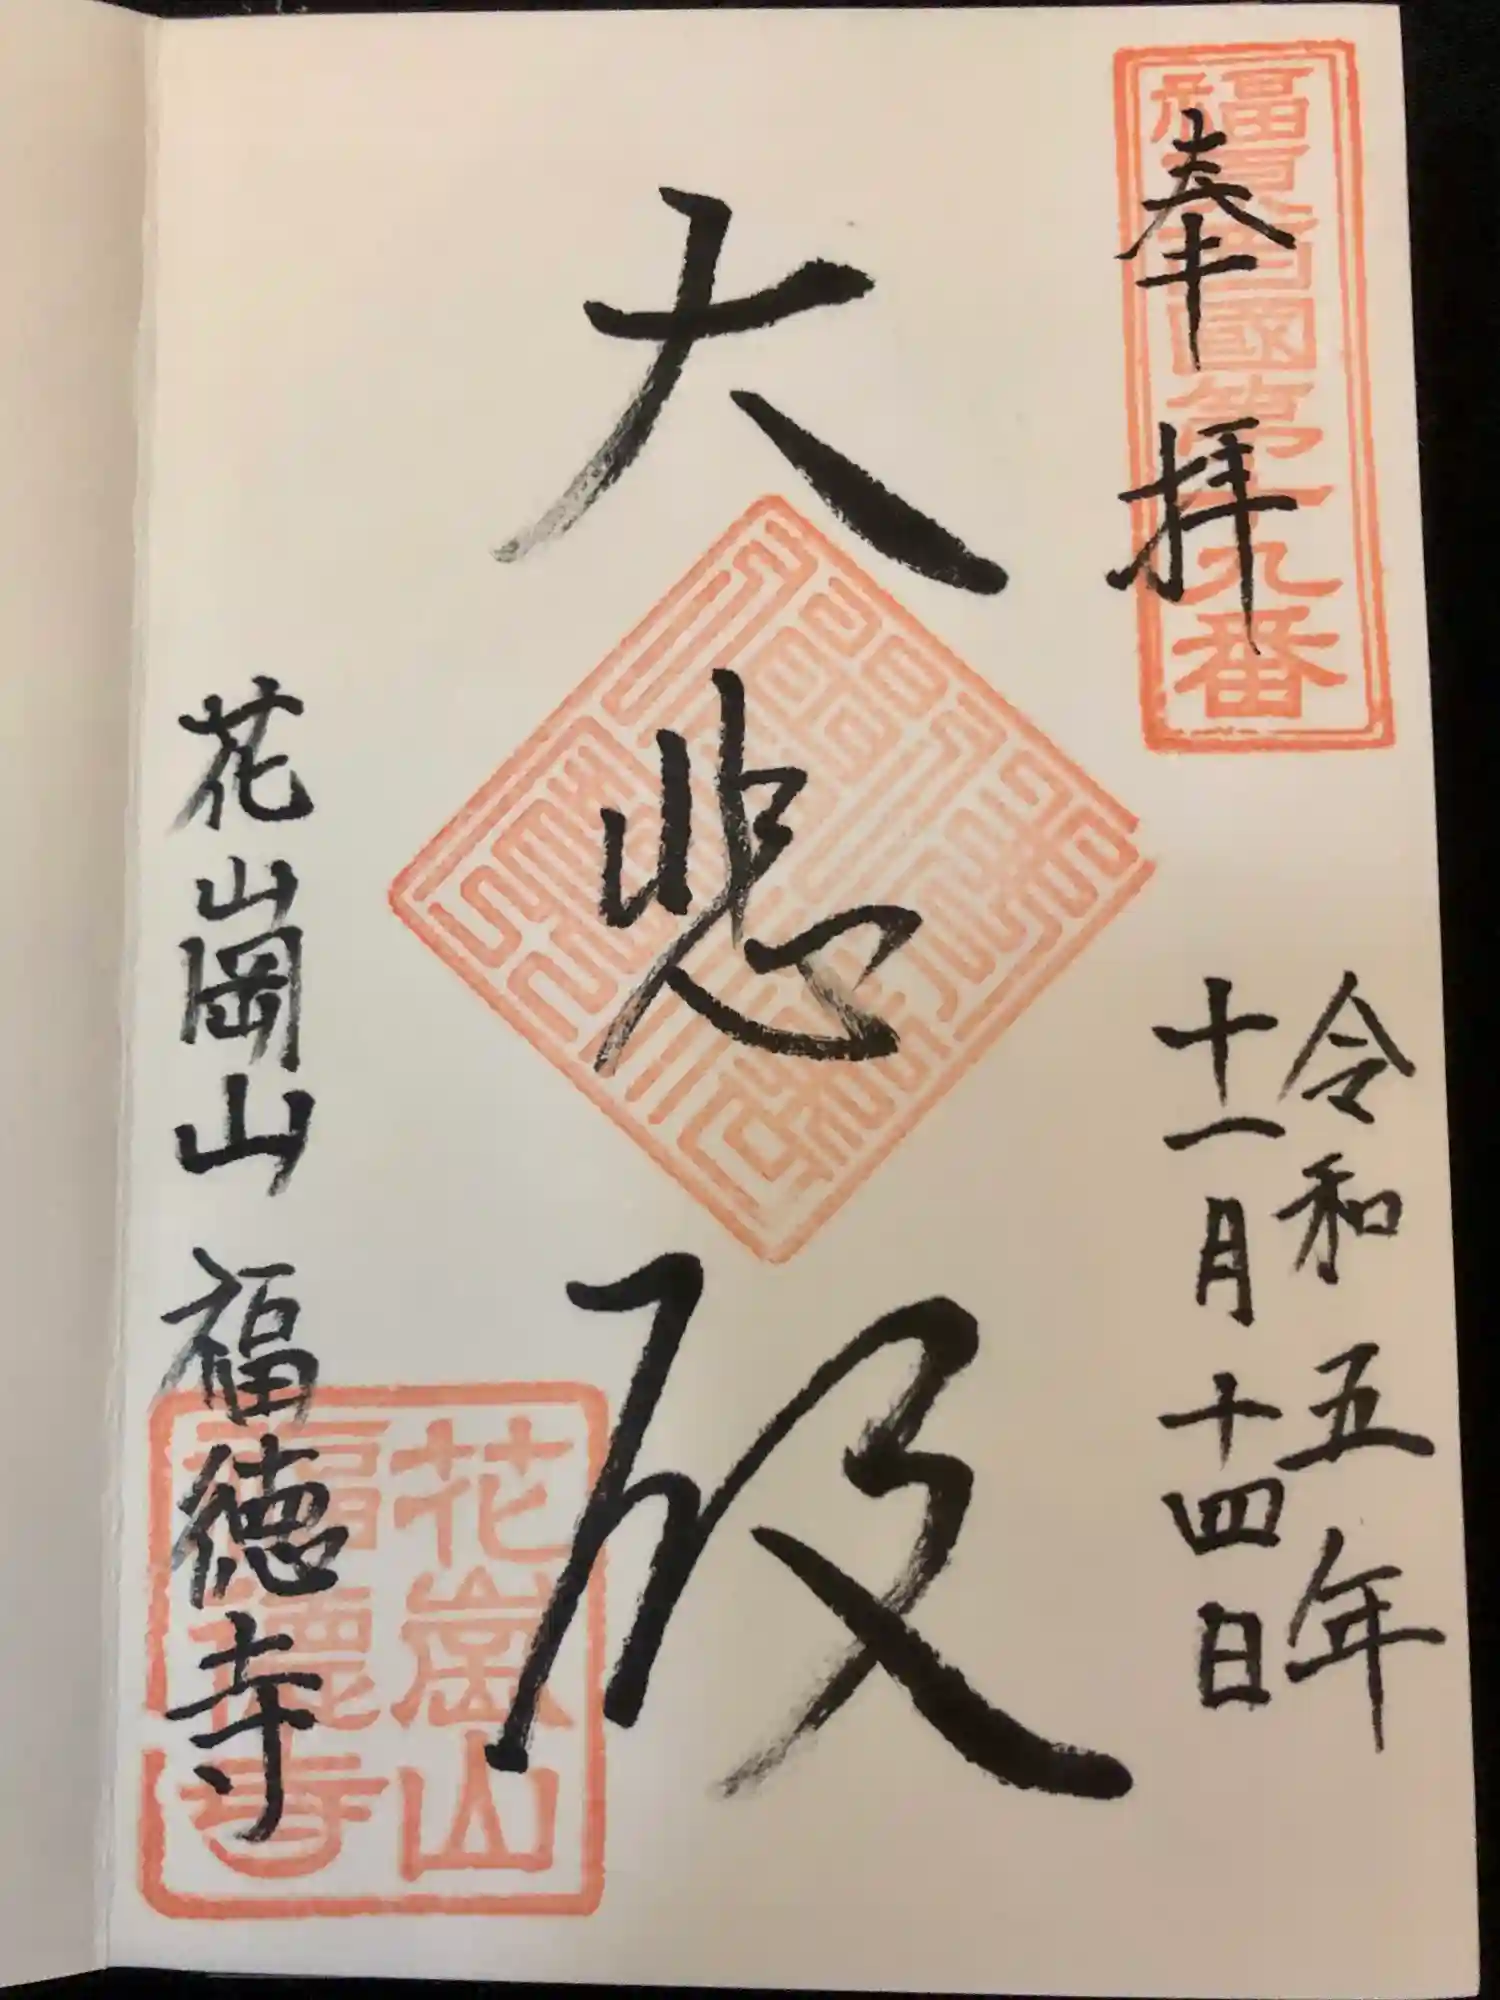 奉拝
國第十九番
令和五年
十一月十四日
大悲殿
花崗山 福徳寺
花崗山
福德寺